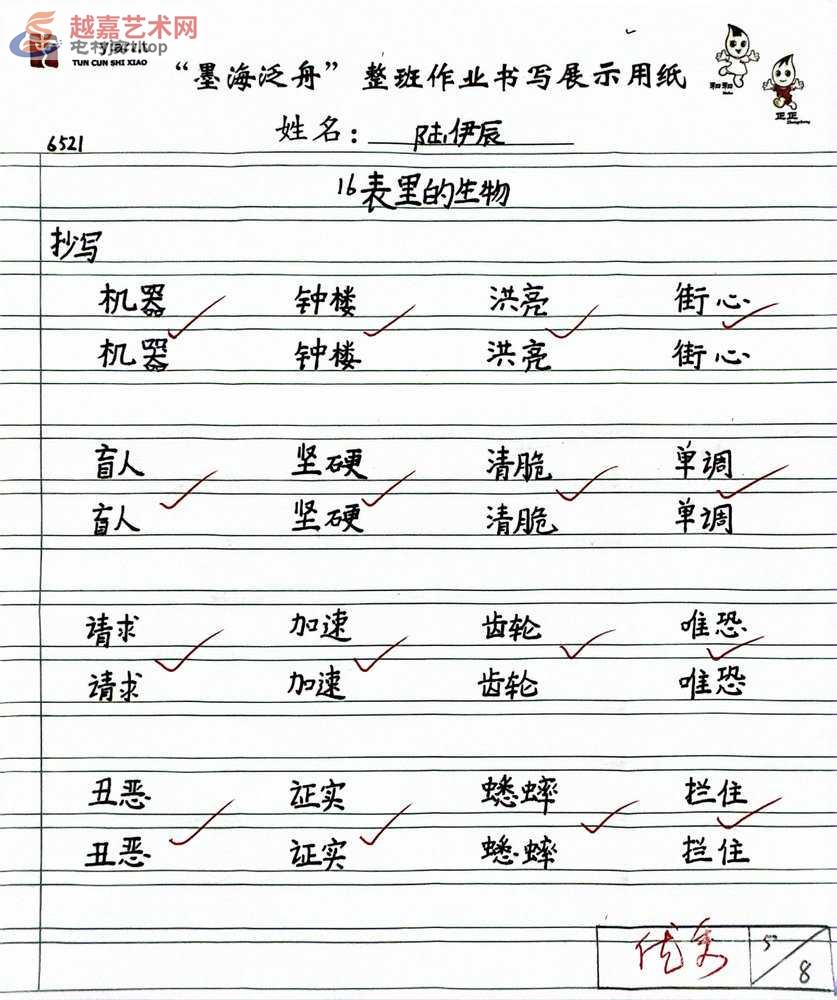 越嘉艺术网
yjart.top
TUN CUN SHI XIAO
“墨海泛舟”整班作业书写展示用纸
和和
正正
6521
姓名：陆伊辰
16表里的生物
抄写
机器 钟楼 洪亮 街心
机器 钟楼 洪亮 街心
盲人 坚硬 清脆 单调
盲人 坚硬 清脆 单调
请求 加速 齿轮 唯恐
请求 加速 齿轮 唯恐
丑恶 证实 蟋蟀 拦住
丑恶 证实 蟋蟀 拦住
优秀 5/8